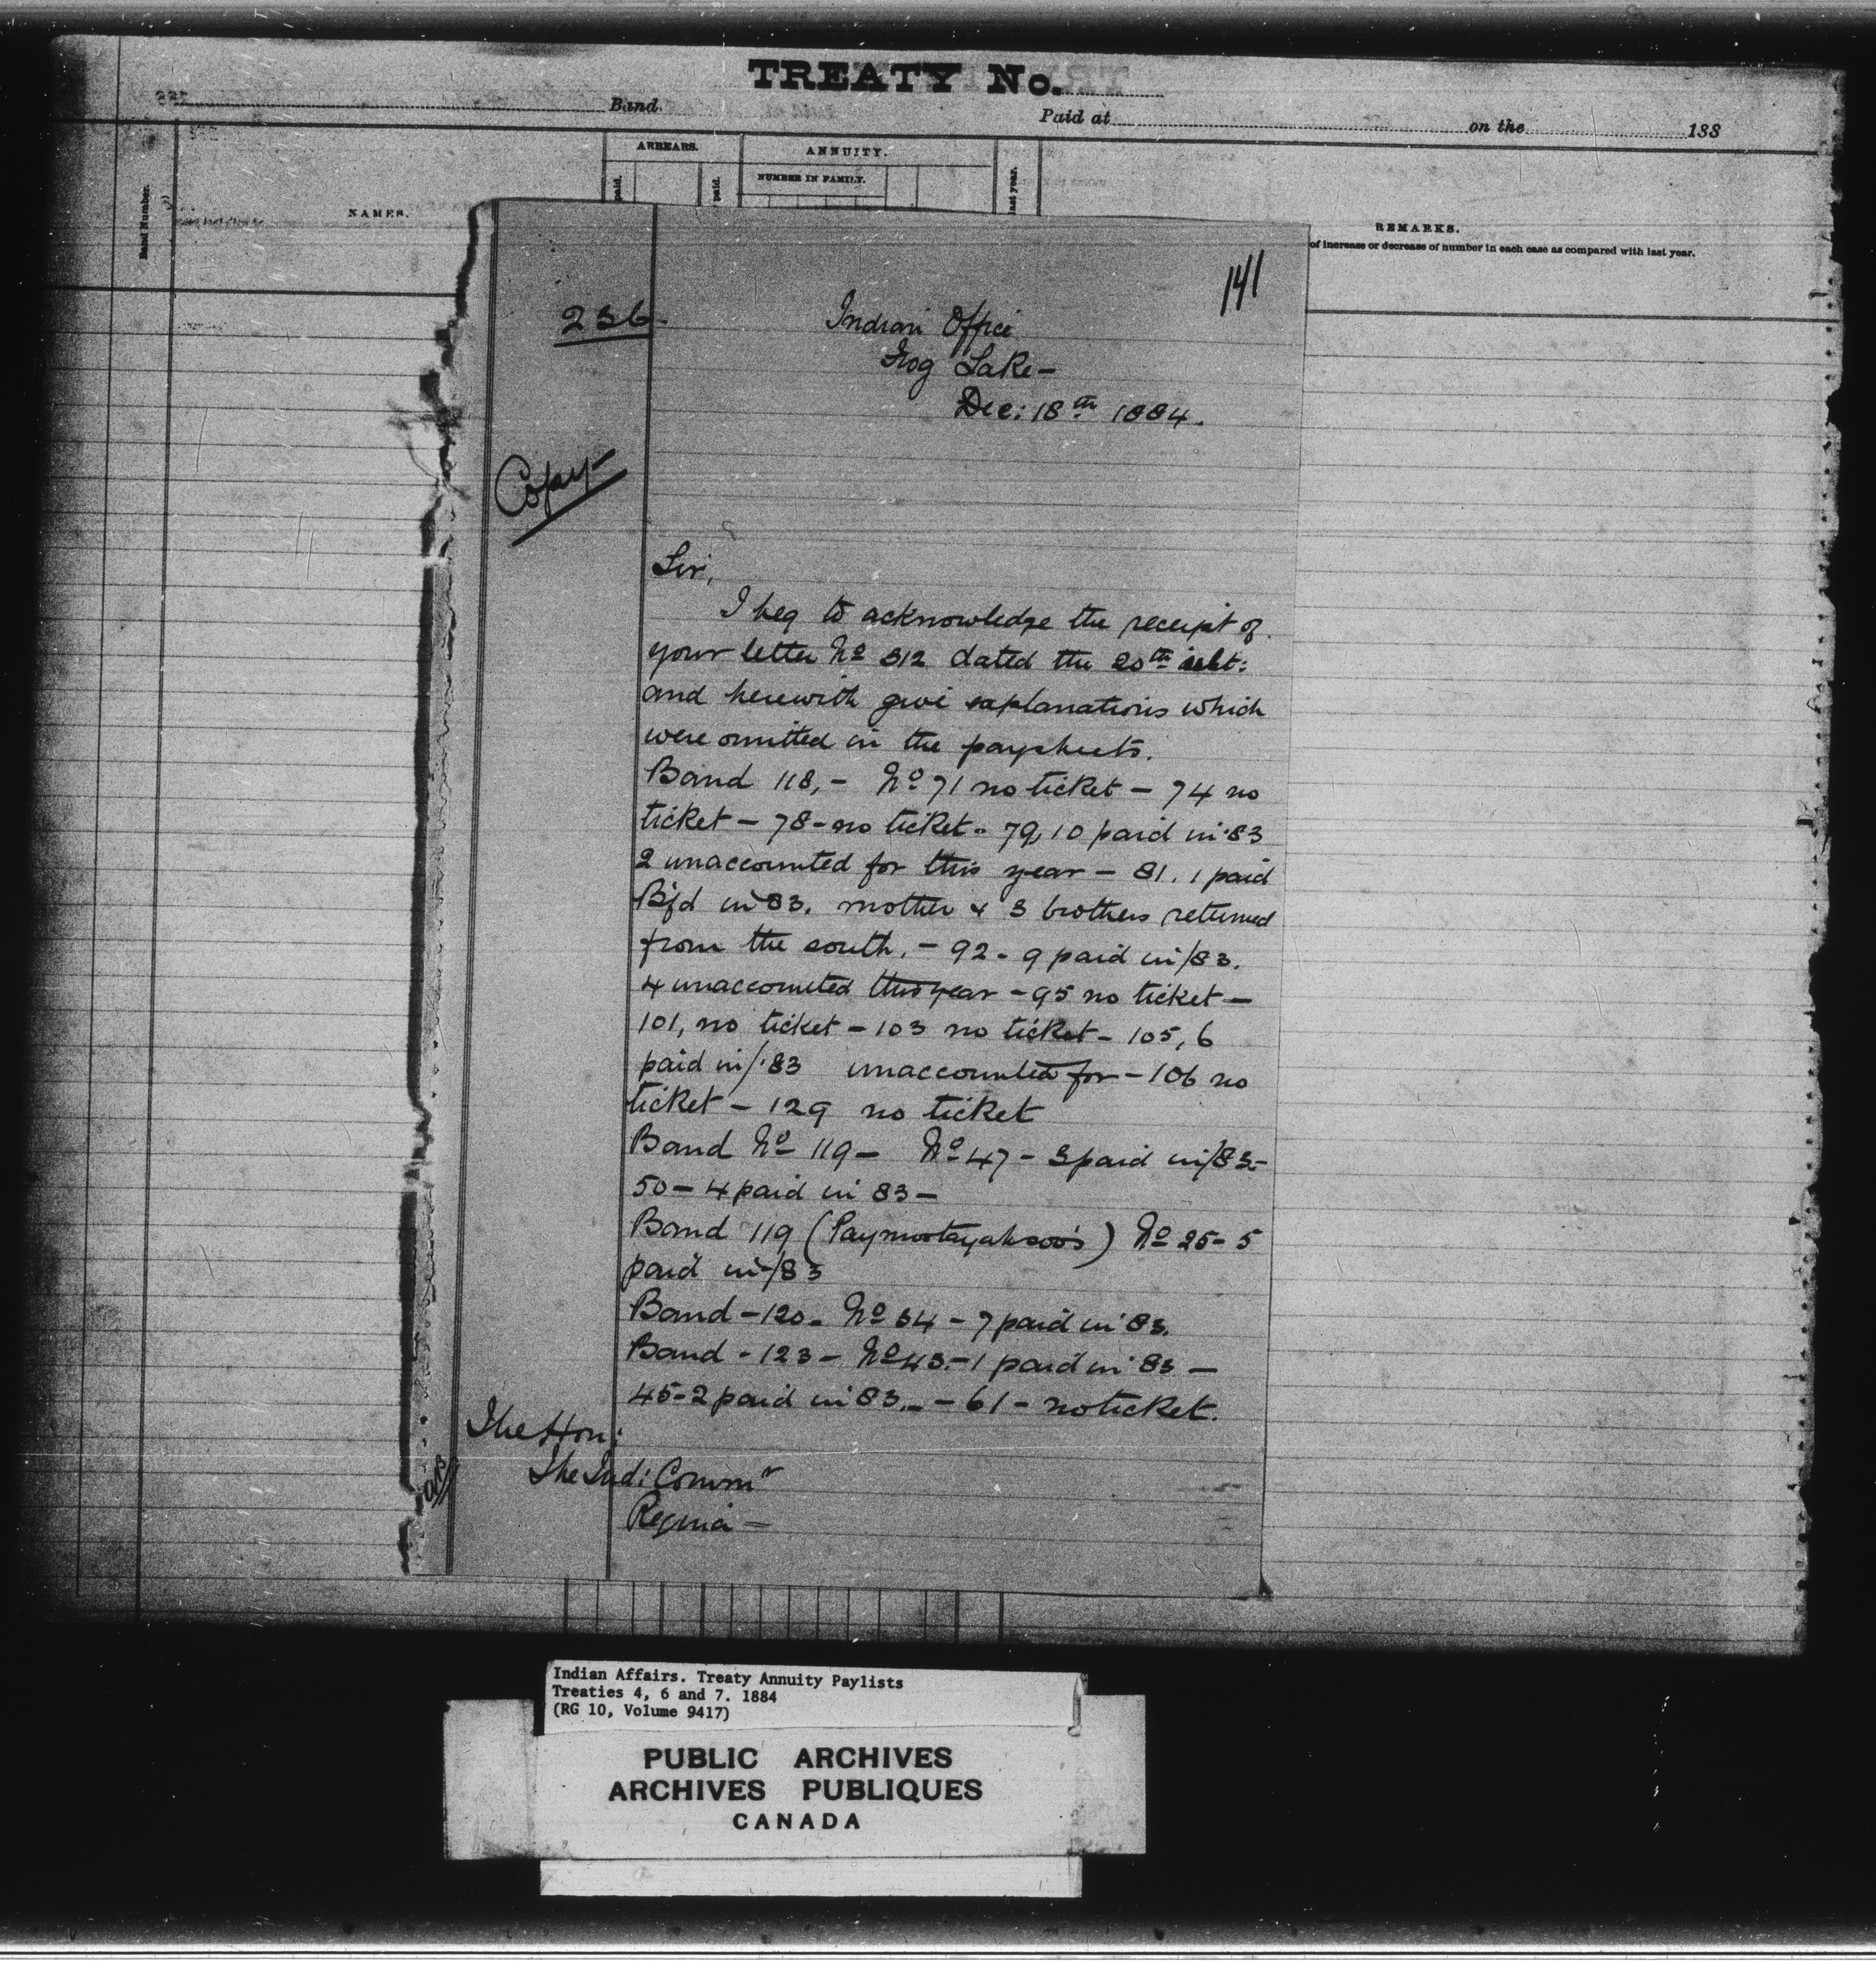 TREATY No.
Band.
Paid at
on the
188
Band Number.
NAMES.
ARREARS.
paid.
paid.
ANNUITY.
NUMBER IN FAMILY.
last year.
REMARKS.
of increase or decrease of number in each case as compared with last year.
141
236
Indian Office
Frog Lake —
Dec: 18th 1884.
Copy —
Sir,
I beg to acknowledge the receipt of
your letter No 312 dated the 20th ult:
and herewith give explanations which
were omitted in the paysheets.
Band 118, — No 71 no ticket — 74 no
ticket — 78 - no ticket - 79, 10 paid in '83
2 unaccounted for this year — 81. 1 paid
Bfd in 83. mother & 3 brothers returned
from the south. — 92 - 9 paid in /83.
4 unaccounted this year — 95 no ticket —
101, no ticket — 103 no ticket — 105, 6
paid in /'83 unaccounted for — 106 no
ticket — 129 no ticket
Band No 119 — No 47 - 3 paid in /83 -
50 — 4 paid in 83 —
Band 119 ( ) No 25 - 5
paid in /83
Band — 120 - No 34 - 7 paid in '83.
Band - 123 - No 43. - 1 paid in '83 —
45 - 2 paid in '83. — 61 - no ticket.
The Hon:
The Ind: Commr
Regina —
Indian Affairs. Treaty Annuity Paylists
Treaties 4, 6 and 7. 1884
(RG 10, Volume 9417)
PUBLIC ARCHIVES
ARCHIVES PUBLIQUES
CANADA